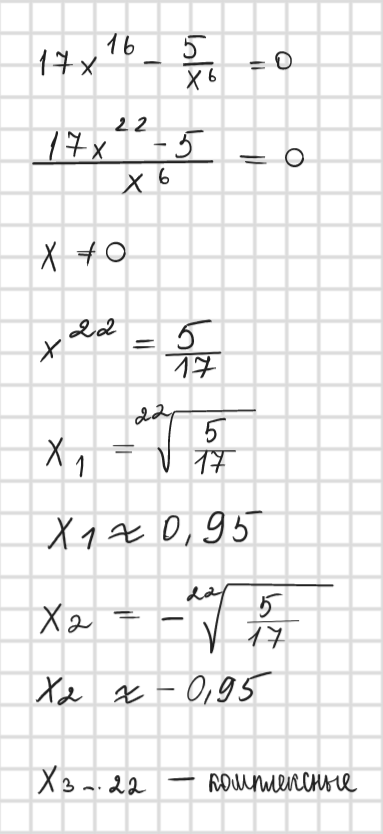 17x^16 - 5/x^6 = 0
(17x^22 - 5)/x^6 = 0
x ≠ 0
x^22 = 5/17
x₁ = ²²√(5/17)
x₁ ≈ 0,95
x₂ = -²²√(5/17)
x₂ ≈ -0,95
x₃...₂₂ — комплексные